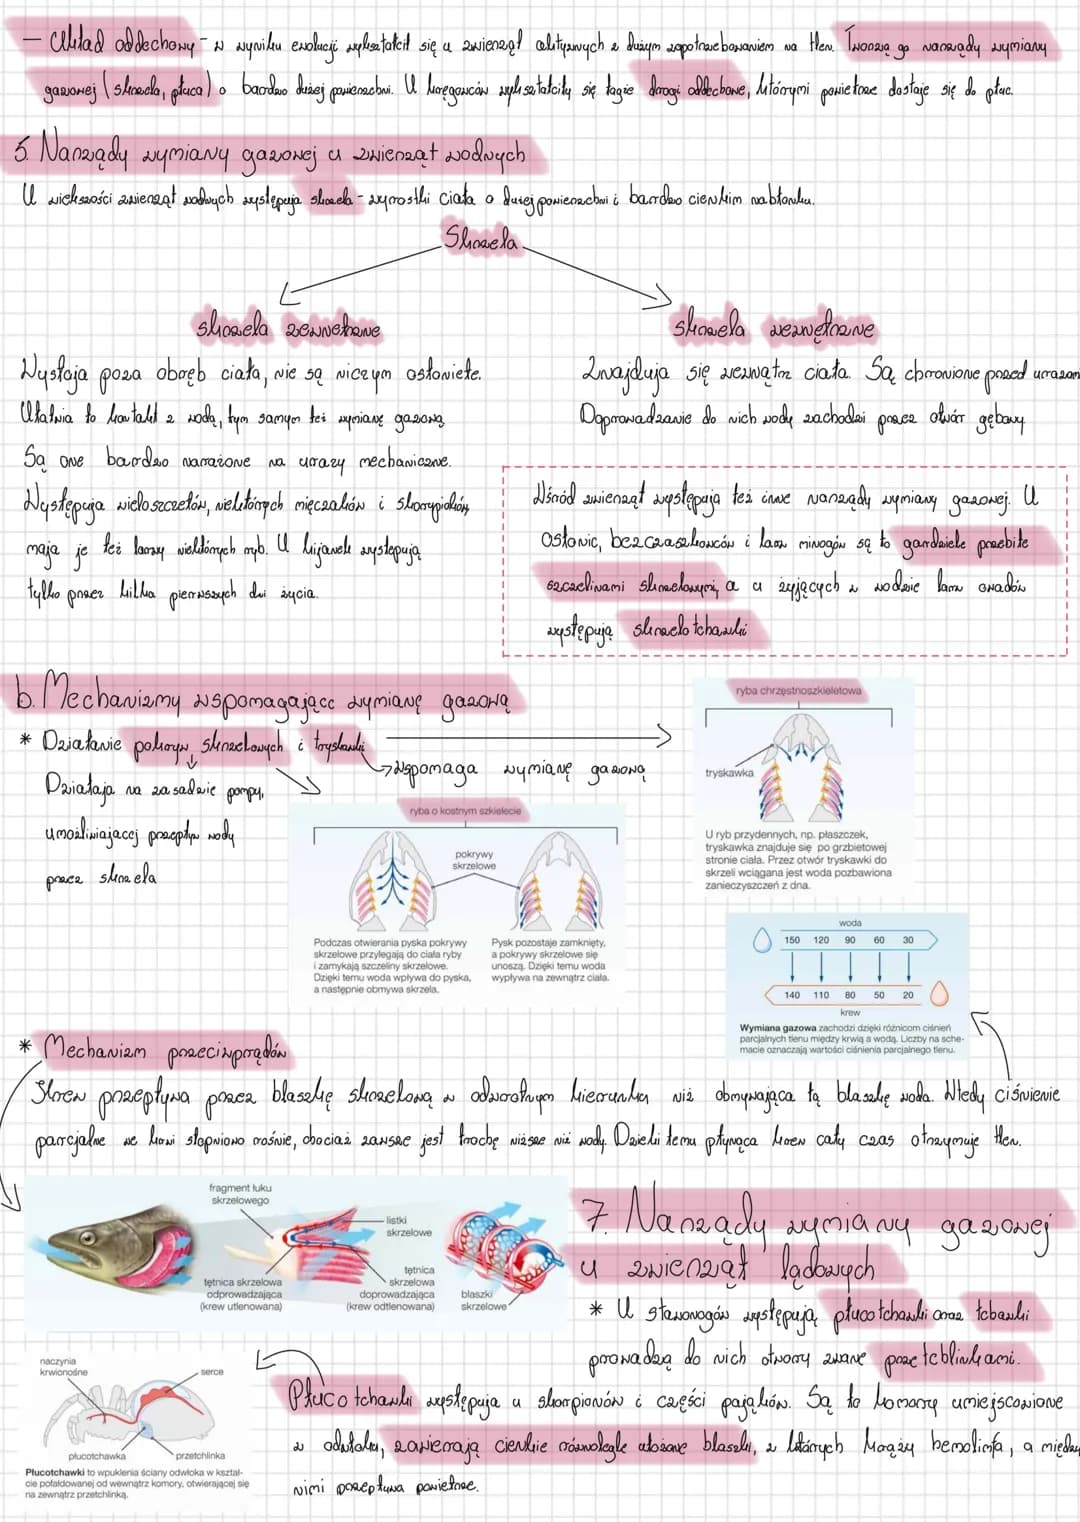 - Układ oddechowy - w wyniku ewolucji wykształcił się u zwierząt aktywnych z dużym zapotrzebowaniem na tlen. Tworzą go narządy wymiany
gazowej (skrzela, płuca) o bardzo dużej powierzchni. U kręgowców wykształciły się także drogi oddechowe, którymi powietrze dostaje się do płuc.
5. Narządy wymiany gazowej u zwierząt wodnych
U większości zwierząt wodnych występują skrzela - wyrostki ciała o dużej powierzchni i bardzo cienkim nabłonku.
Skrzela
skrzela zewnętrzne
Wystają poza obręb ciała, nie są niczym osłonięte.
Ułatwia to kontakt z wodą, tym samym też wymianę gazową
Są one bardzo narażone na urazy mechaniczne.
Występują wieloszczetów, niektórych mięczaków i skorupiaków,
mają je też larwy niektórych ryb. U kijanek występują
tylko przez kilka pierwszych dni życia.
skrzela wewnętrzne
Znajdują się wewnątrz ciała. Są chronione przed urazam
Doprowadzanie do nich wody zachodzi przez otwór gębowy
Wśród zwierząt występują też inne narządy wymiany gazowej. U
osłonic, bezczaszkowców i larw minogów są to gardziele przebite
szczelinami skrzelowymi, a u żyjących w wodzie larw owadów
występują skrzelotchawki
6. Mechanizmy wspomagające wymianę gazową
* Działanie pokryw skrzelowych i tryskawki
wspomaga wymianę gazową
Działają na zasadzie pompy,
umożliwiającej przepływ wody
przez skrzela
ryba chrzęstnoszkieletowa
tryskawka
U ryb przydennych, np. płaszczek,
tryskawka znajduje się po grzbietowej
stronie ciała. Przez otwór tryskawki do
skrzeli wciągana jest woda pozbawiona
zanieczyszczeń z dna.
ryba o kostnym szkielecie
pokrywy
skrzelowe
Podczas otwierania pyska pokrywy
skrzelowe przylegają do ciała ryby
i zamykają szczeliny skrzelowe.
Dzięki temu woda wpływa do pyska,
a następnie obmywa skrzela.
Pysk pozostaje zamknięty,
a pokrywy skrzelowe się
unoszą. Dzięki temu woda
wypływa na zewnątrz ciała.
woda
150 120 90 60 30
140 110 80 50 20
krew
Wymiana gazowa zachodzi dzięki różnicom ciśnień
parcjalnych tlenu między krwią a wodą. Liczby na sche-
macie oznaczają wartości ciśnienia parcjalnego tlenu.
* Mechanizm przeciwprądów
Krew przepływa przez blaszkę skrzelową w odwrotnym kierunku niż obmywająca tą blaszkę woda. Wtedy ciśnienie
parcjalne we krwi stopniowo rośnie, chociaż zawsze jest trochę niższe niż wody. Dzięki temu płynąca krew cały czas otrzymuje tlen.
fragment łuku
skrzelowego
listki
skrzelowe
tętnica skrzelowa
odprowadzająca
(krew utlenowana)
tętnica
skrzelowa
doprowadzająca
(krew odtlenowana)
blaszki
skrzelowe
7. Narządy wymiany gazowej
u zwierząt lądowych
* U stawonogów występują płucotchawki oraz tchawki
prowadzą do nich otwory zwane przetchlinkami.
naczynia
krwionośne
serce
płucotchawka
przetchlinka
Płucotchawki to wpuklenia ściany odwłoka w kształ-
cie pofałdowanej od wewnątrz komory, otwierającej się
na zewnątrz przetchlinką.
Płucotchawki występują u skorpionów i części pająków. Są to komory umiejscowione
w odwłoku, zawierają cienkie równolegle ułożone blaszki, w których krąży hemolimfa, a między
nimi przepływa powietrze.